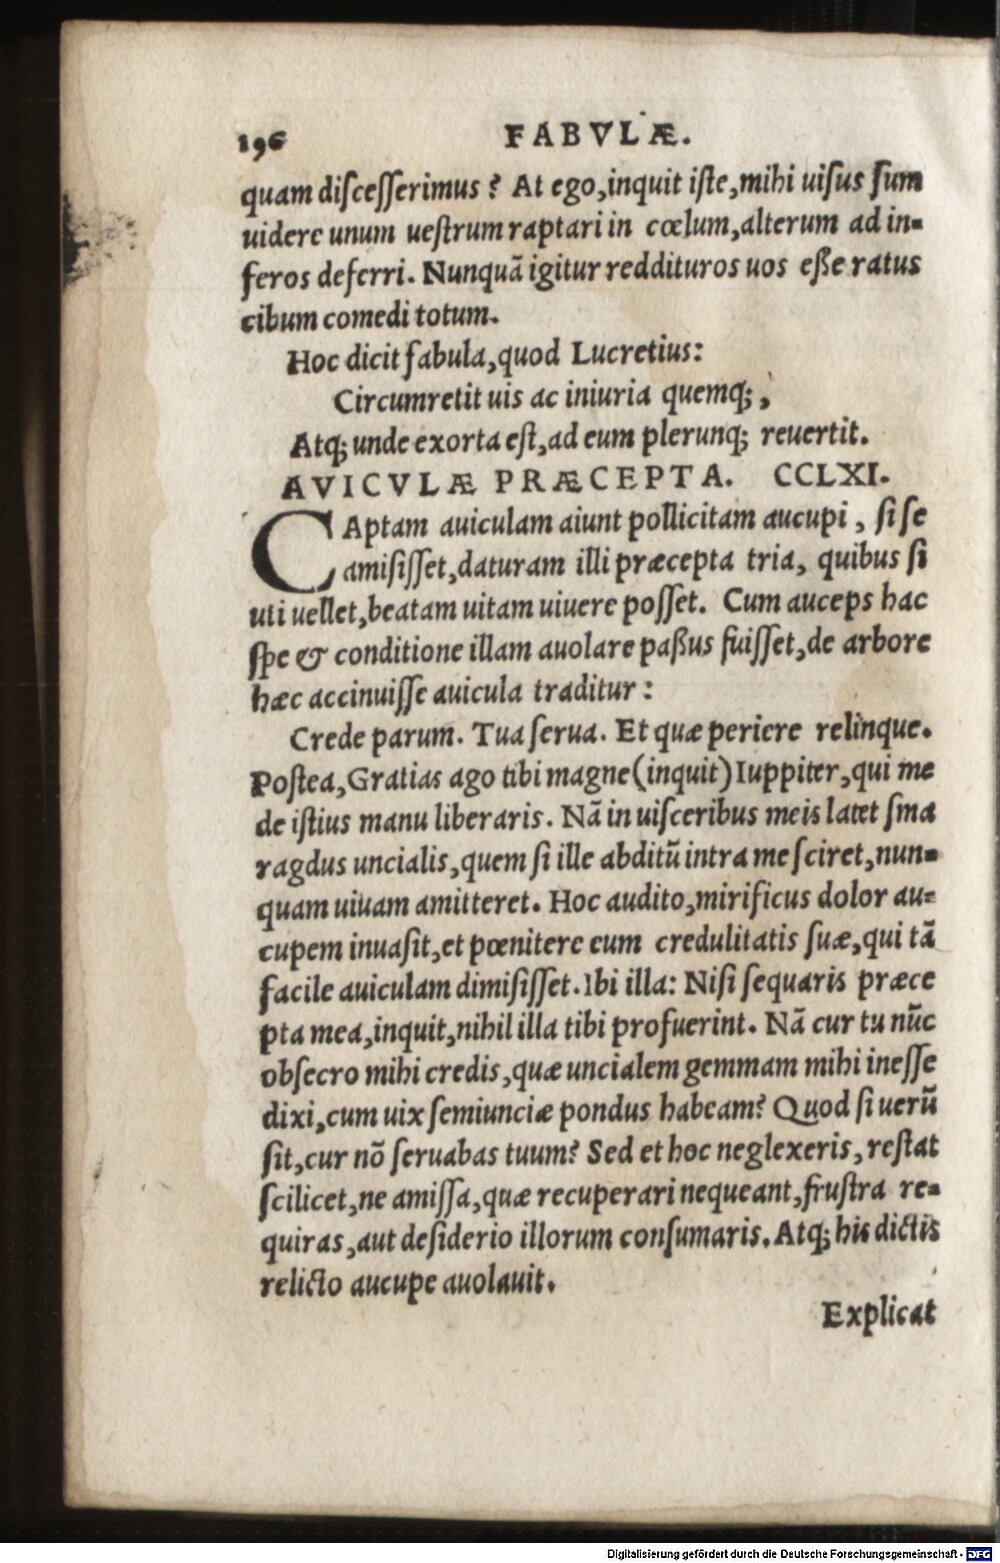 196 FABVLÆ.
quam diſceſſerimus? At ego, inquit iſte, mihi uiſus ſum
uidere unum ueſtrum raptari in cœlum, alterum ad in-
feros deferri. Nunquã igitur reddituros uos eße ratus
cibum comedi totum.
Hoc dicit fabula, quod Lucretius:
Circumretit uis ac iniuria quemq;,
Atq; unde exorta eſt, ad eum plerunq; reuertit.
AVICVLÆ PRÆCEPTA. CCLXI.
CAptam auiculam aiunt pollicitam aucupi, ſi ſe
amiſiſſet, daturam illi præcepta tria, quibus ſi
uti uellet, beatam uitam uiuere poſſet. Cum auceps hac
ſpe & conditione illam auolare paßus fuiſſet, de arbore
hæc accinuiſſe auicula traditur:
Crede parum. Tua ſerua. Et quæ periere relinque.
Poſtea, Gratias ago tibi magne (inquit) Iuppiter, qui me
de iſtius manu liberaris. Nã in uiſceribus meis latet ſma
ragdus uncialis, quem ſi ille abditũ intra me ſciret, nun-
quam uiuam amitteret. Hoc audito, mirificus dolor au-
cupem inuaſit, et pœnitere eum credulitatis ſuæ, qui tã
facile auiculam dimiſiſſet. Ibi illa: Niſi ſequaris præce
pta mea, inquit, nihil illa tibi profuerint. Nã cur tu nũc
obſecro mihi credis, quæ uncialem gemmam mihi ineſſe
dixi, cum uix ſemiunciæ pondus habeam? Quod ſi uerũ
ſit, cur nõ ſeruabas tuum? Sed et hoc neglexeris, reſtat
ſcilicet, ne amiſſa, quæ recuperari nequeant, fruſtra re-
quiras, aut deſiderio illorum conſumaris. Atq; his dictis
relicto aucupe auolauit.
Explicat
Digitalisierung gefördert durch die Deutsche Forschungsgemeinschaft - DFG